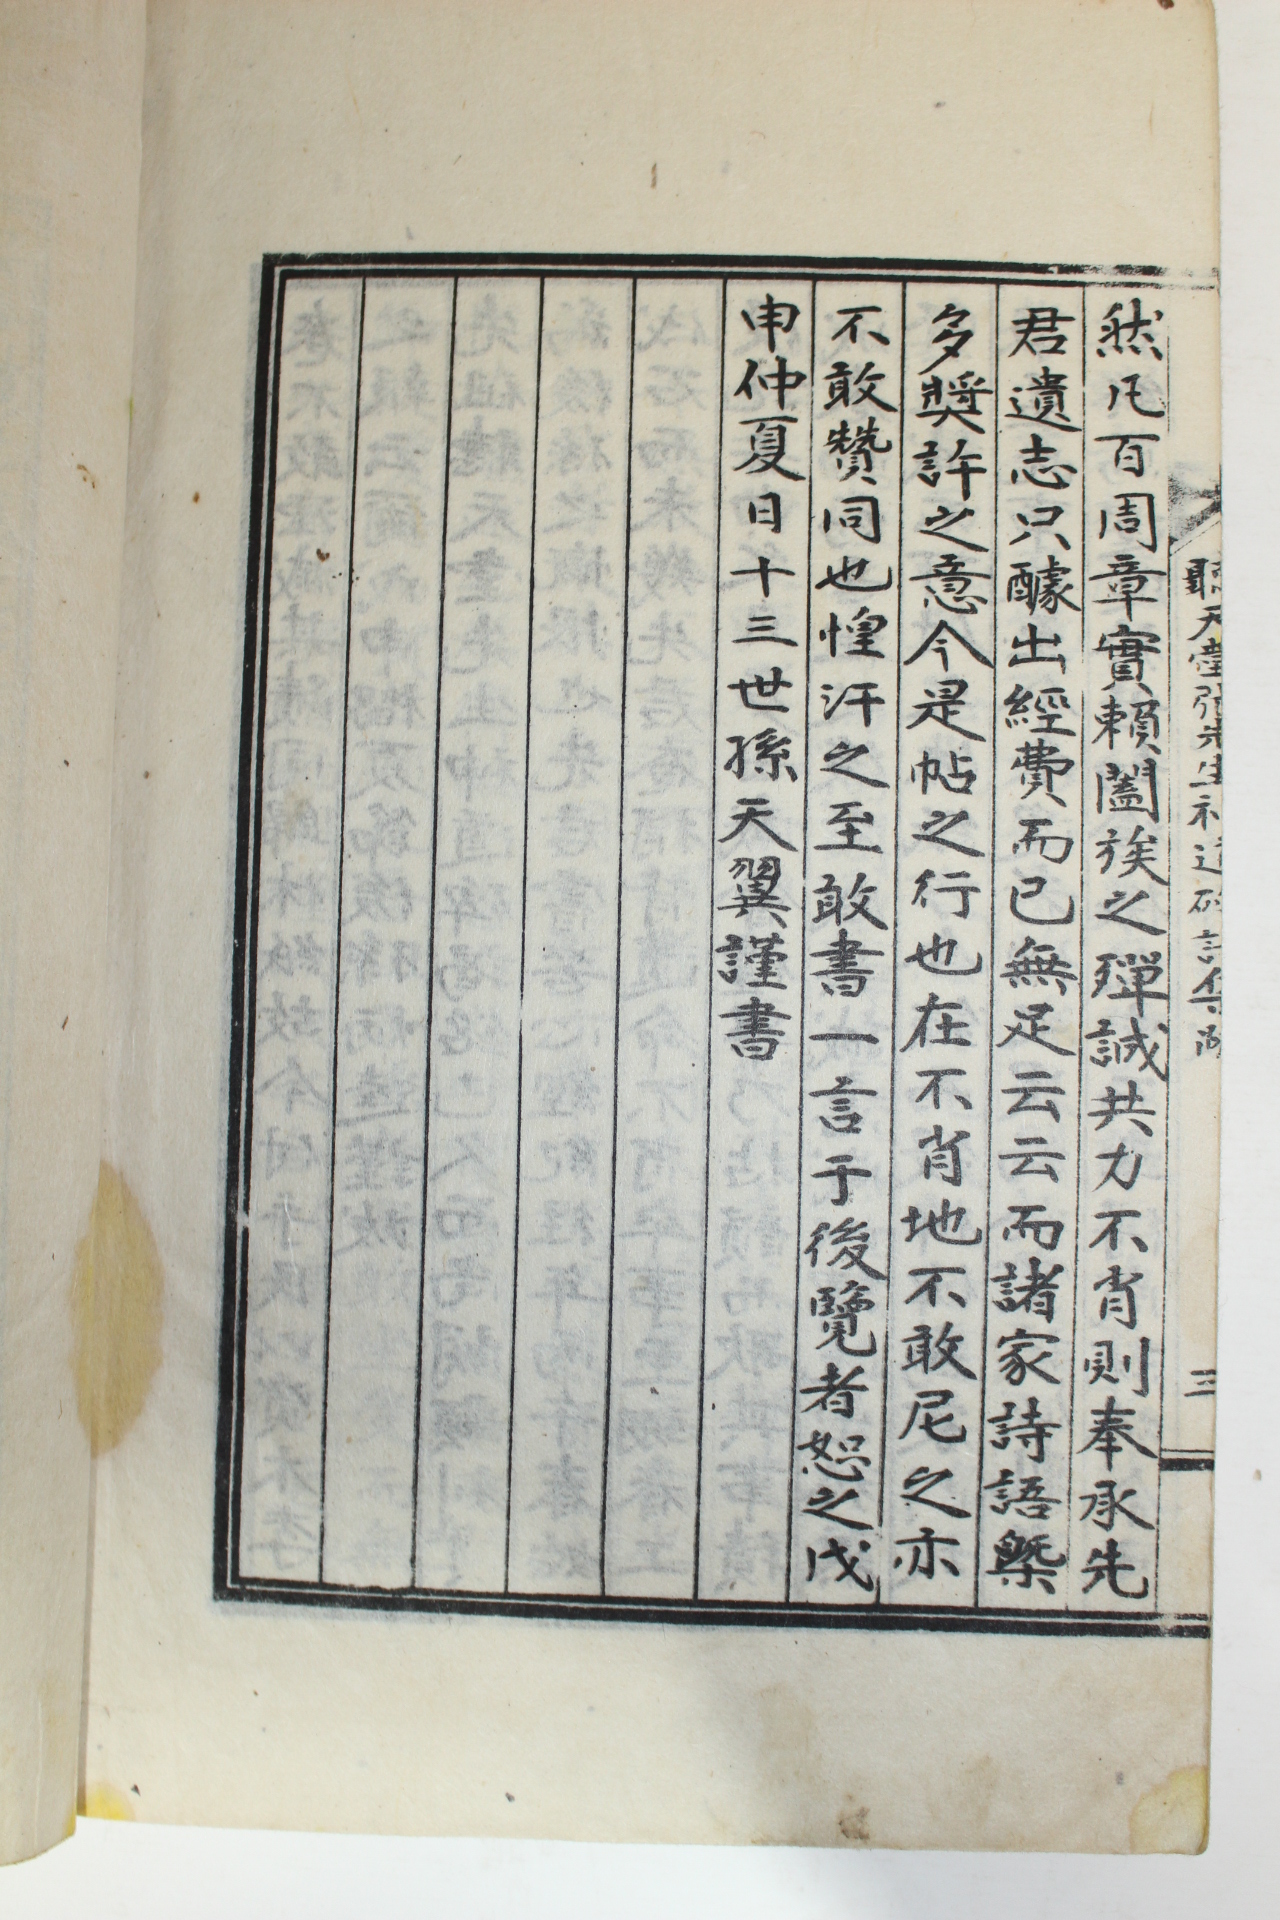 然凡百周章實賴闔族之殫誠共力不肖則奉承先
君遺志只醵出經費而已無足云云而諸家詩語槩
多獎許之意今是帖之行也在不肖地不敢尼之亦
不敢贊同也惶汗之至敢書一言于後覽者恕之戊
申仲夏日十三世孫天翼謹書
聽天堂張先生神道碑詩集
三